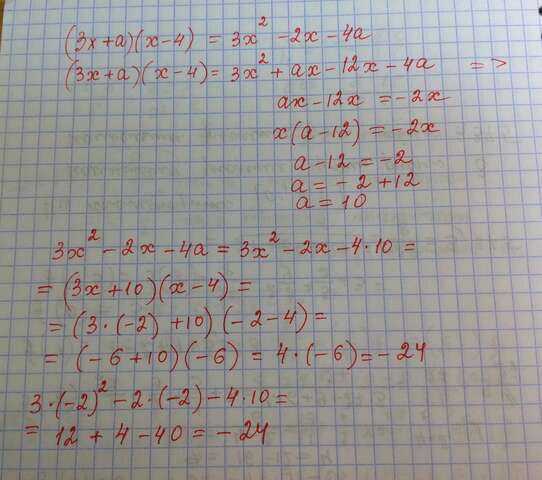 (3x+a)(x-4) = 3x² -2x -4a
(3x+a)(x-4) = 3x² + ax -12x -4a =>
ax -12x = -2x
x(a-12) = -2x
a-12 = -2
a = -2 +12
a = 10
3x² -2x -4a = 3x² -2x -4·10 =
= (3x+10)(x-4) =
= (3·(-2) +10)(-2-4) =
= (-6+10)(-6) = 4·(-6) = -24
3·(-2)² -2·(-2) -4·10 =
= 12 + 4 -40 = -24